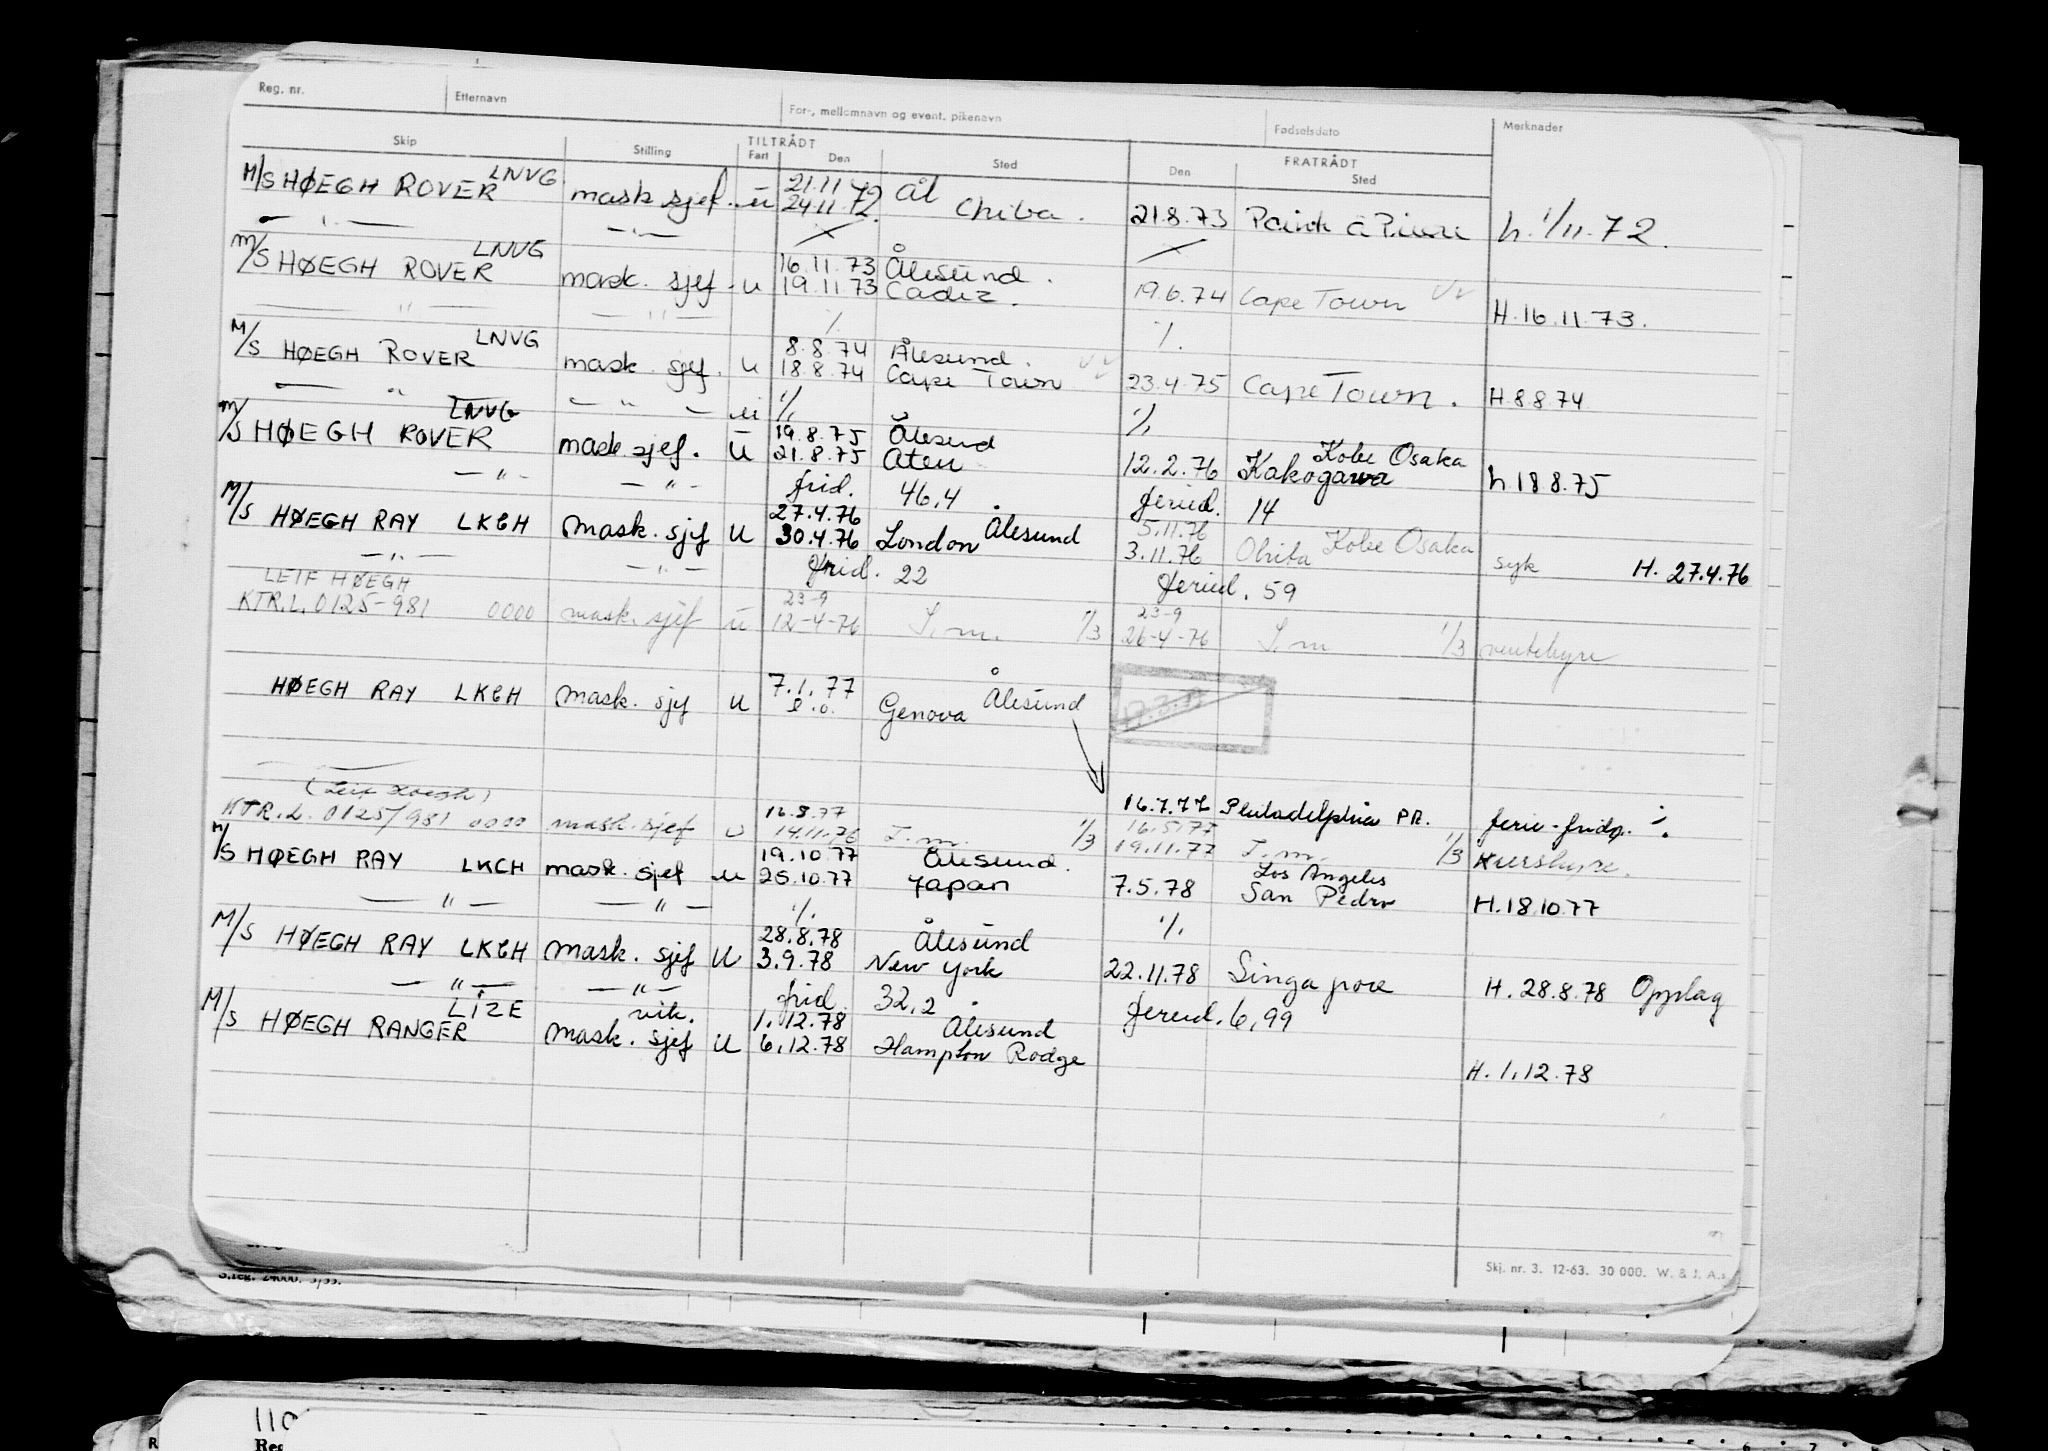 Reg. nr. Etternavn For-, mellomnavn og event. pikenavn Fødselsdato Merknader
Skip Stilling TILTRÅDT Fart Den Sted FRATRÅDT Den Sted
M/S HØEGH ROVER LNVG mask sjef. u 21.11 24.11.72 Ål Chiba. 21.8.73 Point à Pierre h. 1/11.72.
— " — — " —
M/S HØEGH ROVER LNVG mask. sjef - u 16.11.73 Ålesund.
19.11.73 Cadiz. 19.6.74 Cape Town H.16.11.73.
— " — — " — %. %.
M/S HØEGH ROVER LNVG mask. sjef. u 8.8.74 Ålesund.
18.8.74 Cape Town 23.4.75 Cape Town. H.8.8.74
— " — — " — ü %. %.
M/S HØEGH ROVER LNVG mask sjef. u 19.8.75 Ålesund
21.8.75 Aten 12.2.76 Kakogawa Kobe Osaka h 18 8.75
— " — — " — frid. 46,4 feried. 14
M/S HØEGH RAY LKCH mask. sjef u 27.4.76 Ålesund 5.11.76
30.4.76 London 3.11.76 Ohita Kobe Osaka syk H. 27.4.76
— " — — " — frid. 22 feried. 59
LEIF HØEGH 23-9 23-9
KTR.L. 0125-981 0000 mask. sjef u 12-4-76 T.m. 1/3 26-4-76 T.m 1/3 ventehyre
HØEGH RAY LKCH mask. sjef u 7.1.77 Ålesund
Genova
(Leif Høegh) 16.7.77 Philadelphia PR. ferie-fridg. %.
KTR.L. 0125/981 0000 mask. sjef u 16.3.77 14.11.76 T.m. 1/3 16.5.77 19.11.77 T.m. 1/3 Kurshyre.
M/S HØEGH RAY LKCH mask. sjef u 19.10.77 Ålesund.
25.10.77 Japan 7.5.78 Los Angeles San Pedro H.18.10.77
— " — — " — %. %.
M/S HØEGH RAY LKCH mask. sjef u 28.8.78 Ålesund
3.9.78 New York 22.11.78 Singapore H. 28.8.78 Opplag
— " — — " — frid. 32,2 feried. 6,99
M/S HØEGH RANGER LIZE vik. mask. sjef u 1.12.78 Ålesund
6.12.78 Hampton Rodge H. 1.12.78
Skj. nr. 3. 12-63. 30 000. W. & J. A.s
S.reg. 24000. 5/55.
110
Reg